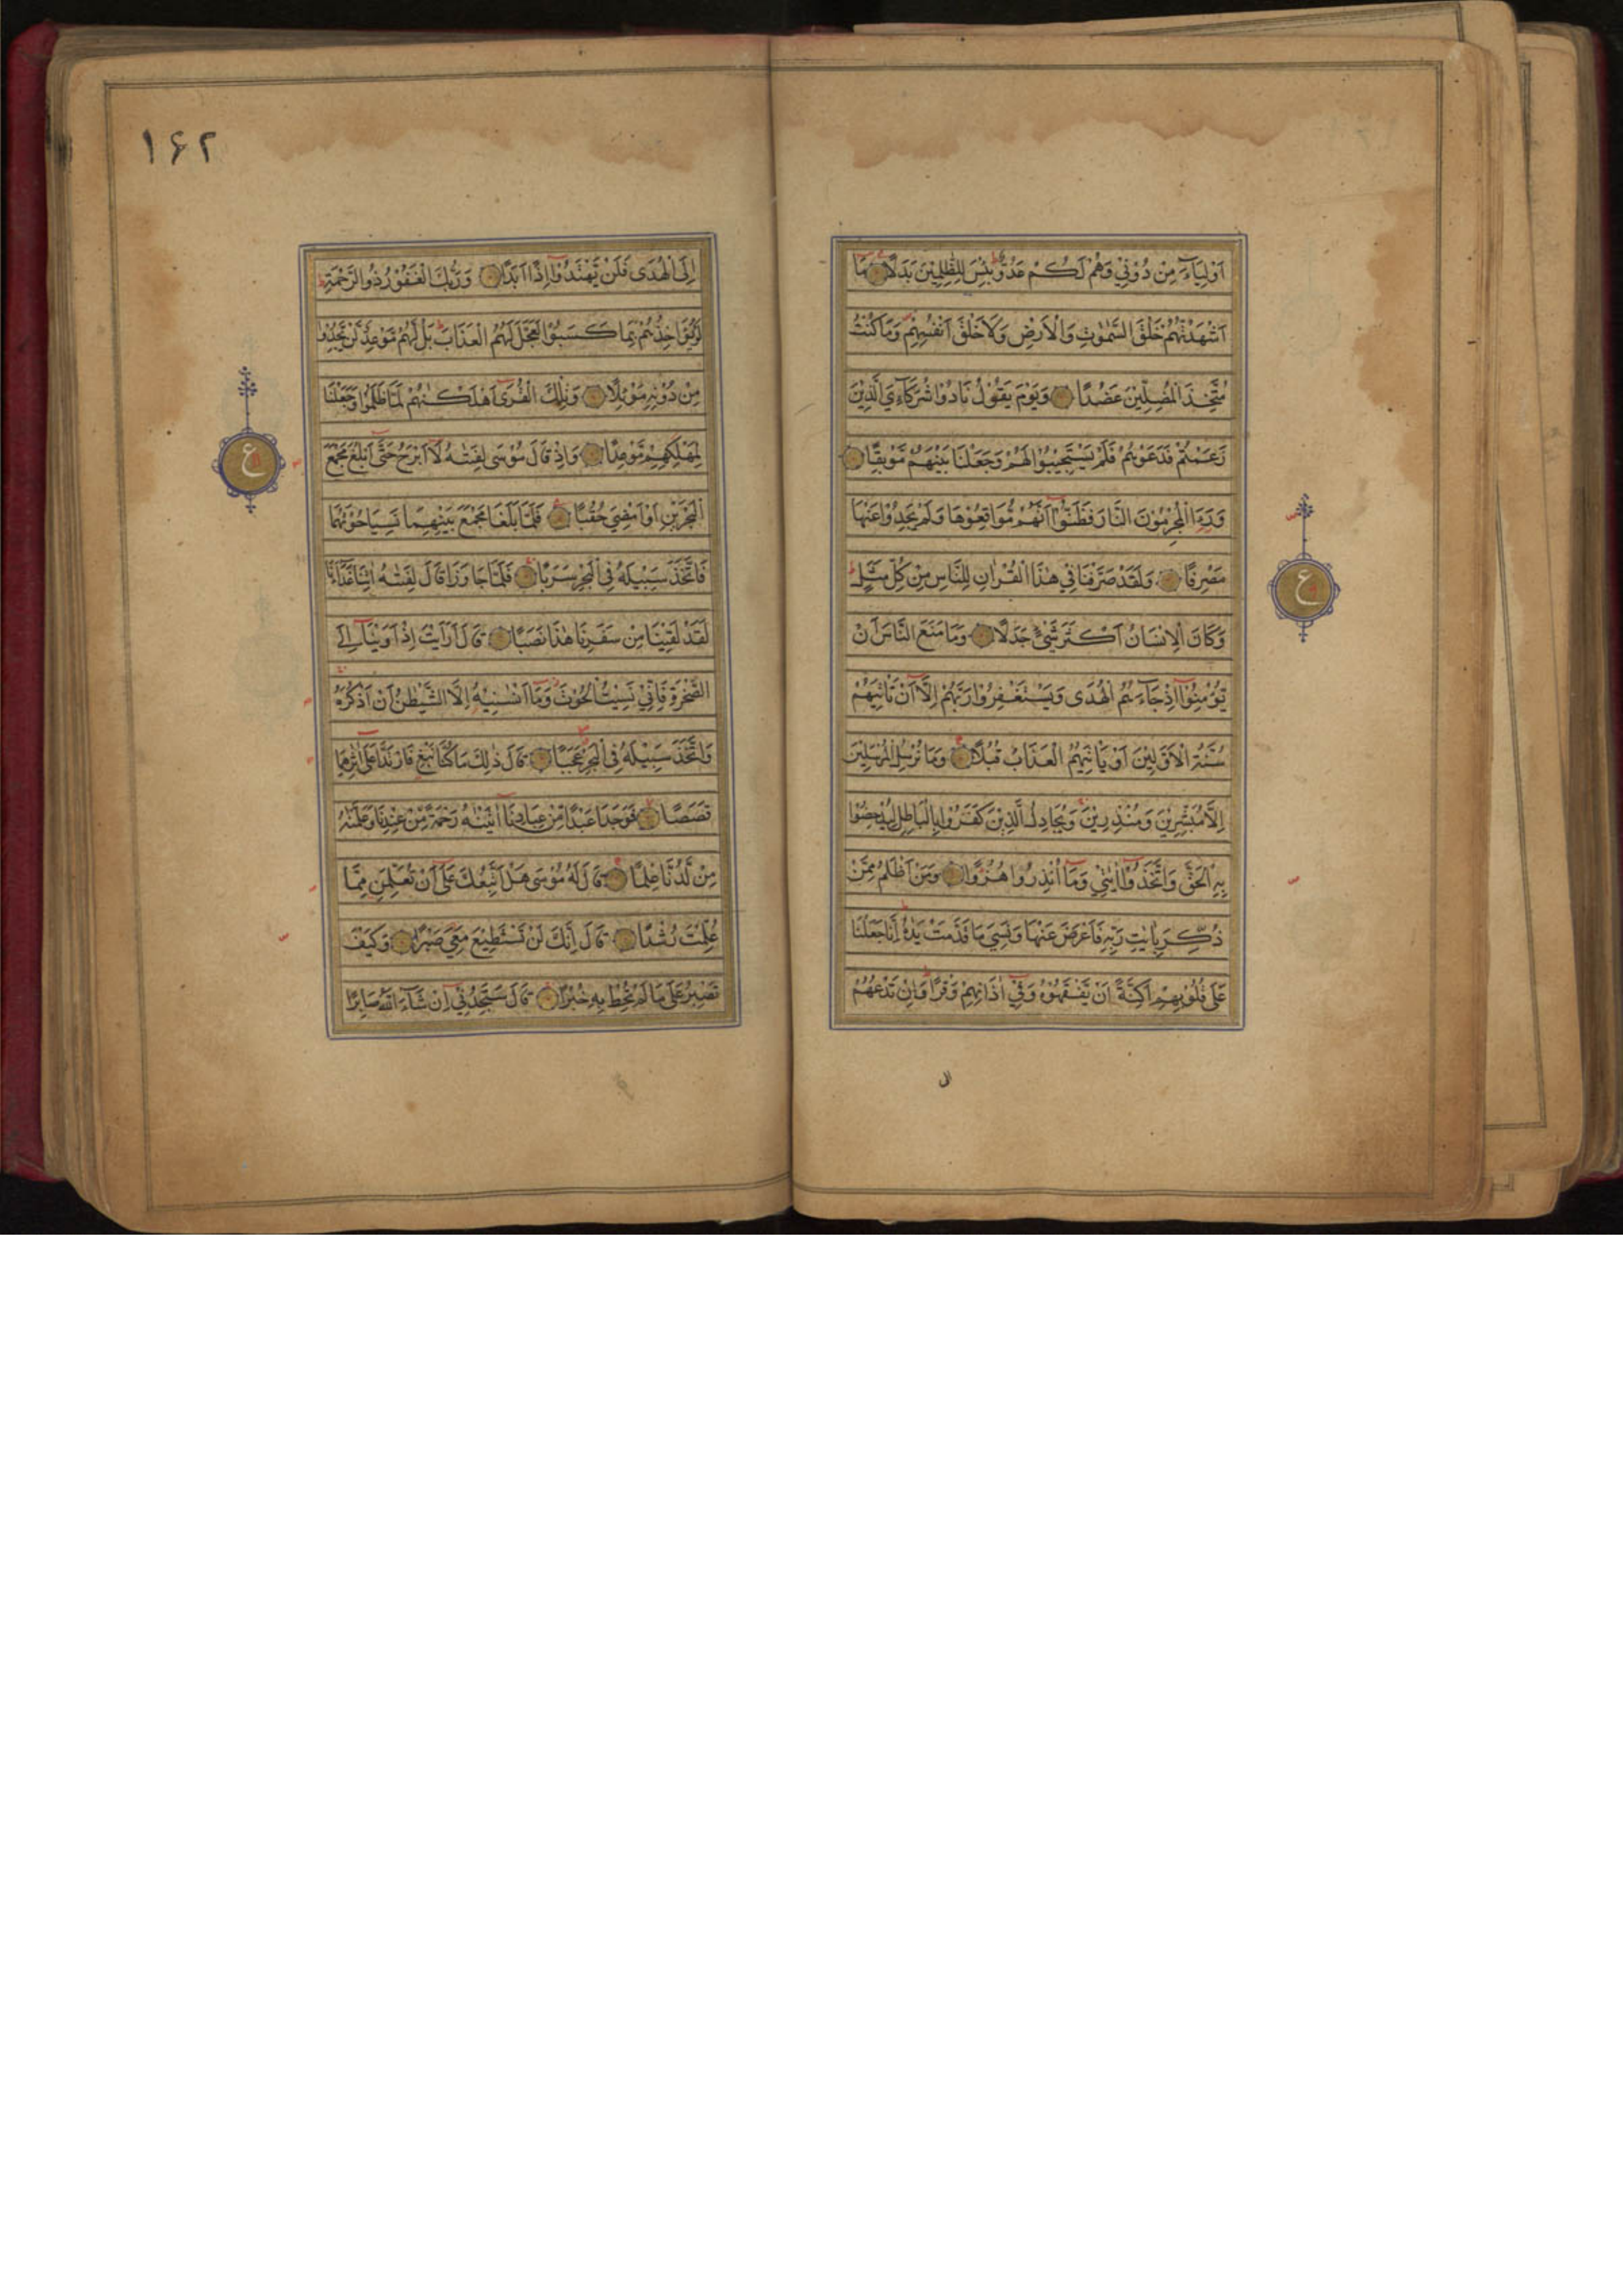 اَوْلِيَآءَ مِنْ دُوْنِيْ وَهُمْ لَكُمْ عَدُوٌّ بِئْسَ لِلظّٰلِمِيْنَ بَدَلًا مَا
اَشْهَدْتُهُمْ خَلْقَ السَّمٰوٰتِ وَالْاَرْضِ وَلَا خَلْقَ اَنْفُسِهِمْ وَمَا كُنْتُ
مُتَّخِذَ الْمُضِلِّيْنَ عَضُدًا وَيَوْمَ يَقُوْلُ نَادُوْا شُرَكَآءِيَ الَّذِيْنَ
زَعَمْتُمْ فَدَعَوْهُمْ فَلَمْ يَسْتَجِيْبُوْا لَهُمْ وَجَعَلْنَا بَيْنَهُمْ مَّوْبِقًا
وَرَءَا الْمُجْرِمُوْنَ النَّارَ فَظَنُّوْٓا اَنَّهُمْ مُّوَاقِعُوْهَا وَلَمْ يَجِدُوْا عَنْهَا
مَصْرِفًا وَلَقَدْ صَرَّفْنَا فِيْ هٰذَا الْقُرْاٰنِ لِلنَّاسِ مِنْ كُلِّ مَثَلٍ
وَكَانَ الْاِنْسَانُ اَكْثَرَ شَيْءٍ جَدَلًا وَمَا مَنَعَ النَّاسَ اَنْ
يُّؤْمِنُوْٓا اِذْ جَآءَهُمُ الْهُدٰى وَيَسْتَغْفِرُوْا رَبَّهُمْ اِلَّآ اَنْ تَاْتِيَهُمْ
سُنَّةُ الْاَوَّلِيْنَ اَوْ يَاْتِيَهُمُ الْعَذَابُ قُبُلًا وَمَا نُرْسِلُ الْمُرْسَلِيْنَ
اِلَّا مُبَشِّرِيْنَ وَمُنْذِرِيْنَ وَيُجَادِلُ الَّذِيْنَ كَفَرُوْا بِالْبَاطِلِ لِيُدْحِضُوْا
بِهِ الْحَقَّ وَاتَّخَذُوْٓا اٰيٰتِيْ وَمَآ اُنْذِرُوْا هُزُوًا وَمَنْ اَظْلَمُ مِمَّنْ
ذُكِّرَ بِاٰيٰتِ رَبِّهٖ فَاَعْرَضَ عَنْهَا وَنَسِيَ مَا قَدَّمَتْ يَدٰهُ اِنَّا جَعَلْنَا
عَلٰى قُلُوْبِهِمْ اَكِنَّةً اَنْ يَّفْقَهُوْهُ وَفِيْٓ اٰذَانِهِمْ وَقْرًا وَاِنْ تَدْعُهُمْ
ع
۱۶۲
اِلَى الْهُدٰى فَلَنْ يَّهْتَدُوْٓا اِذًا اَبَدًا وَرَبُّكَ الْغَفُوْرُ ذُو الرَّحْمَةِ
لَوْ يُؤَاخِذُهُمْ بِمَا كَسَبُوْا لَعَجَّلَ لَهُمُ الْعَذَابَ بَلْ لَّهُمْ مَّوْعِدٌ لَّنْ يَّجِدُوْا
مِنْ دُوْنِهٖ مَوْئِلًا وَتِلْكَ الْقُرٰٓى اَهْلَكْنٰهُمْ لَمَّا ظَلَمُوْا وَجَعَلْنَا
لِمَهْلِكِهِمْ مَّوْعِدًا وَاِذْ قَالَ مُوْسٰى لِفَتٰىهُ لَآ اَبْرَحُ حَتّٰٓى اَبْلُغَ مَجْمَعَ
الْبَحْرَيْنِ اَوْ اَمْضِيَ حُقُبًا فَلَمَّا بَلَغَا مَجْمَعَ بَيْنِهِمَا نَسِيَا حُوْتَهُمَا
فَاتَّخَذَ سَبِيْلَهٗ فِى الْبَحْرِ سَرَبًا فَلَمَّا جَاوَزَا قَالَ لِفَتٰىهُ اٰتِنَا غَدَآءَنَا
لَقَدْ لَقِيْنَا مِنْ سَفَرِنَا هٰذَا نَصَبًا قَالَ اَرَاَيْتَ اِذْ اَوَيْنَآ اِلَى
الصَّخْرَةِ فَاِنِّيْ نَسِيْتُ الْحُوْتَ وَمَآ اَنْسٰنِيْهُ اِلَّا الشَّيْطٰنُ اَنْ اَذْكُرَهٗ
وَاتَّخَذَ سَبِيْلَهٗ فِى الْبَحْرِ عَجَبًا قَالَ ذٰلِكَ مَا كُنَّا نَبْغِ فَارْتَدَّا عَلٰٓى اٰثَارِهِمَا
قَصَصًا فَوَجَدَا عَبْدًا مِّنْ عِبَادِنَآ اٰتَيْنٰهُ رَحْمَةً مِّنْ عِنْدِنَا وَعَلَّمْنٰهُ
مِنْ لَّدُنَّا عِلْمًا قَالَ لَهٗ مُوْسٰى هَلْ اَتَّبِعُكَ عَلٰٓى اَنْ تُعَلِّمَنِ مِمَّا
عُلِّمْتَ رُشْدًا قَالَ اِنَّكَ لَنْ تَسْتَطِيْعَ مَعِيَ صَبْرًا وَكَيْفَ
تَصْبِرُ عَلٰى مَا لَمْ تُحِطْ بِهٖ خُبْرًا قَالَ سَتَجِدُنِيْٓ اِنْ شَآءَ اللّٰهُ صَابِرًا
ع